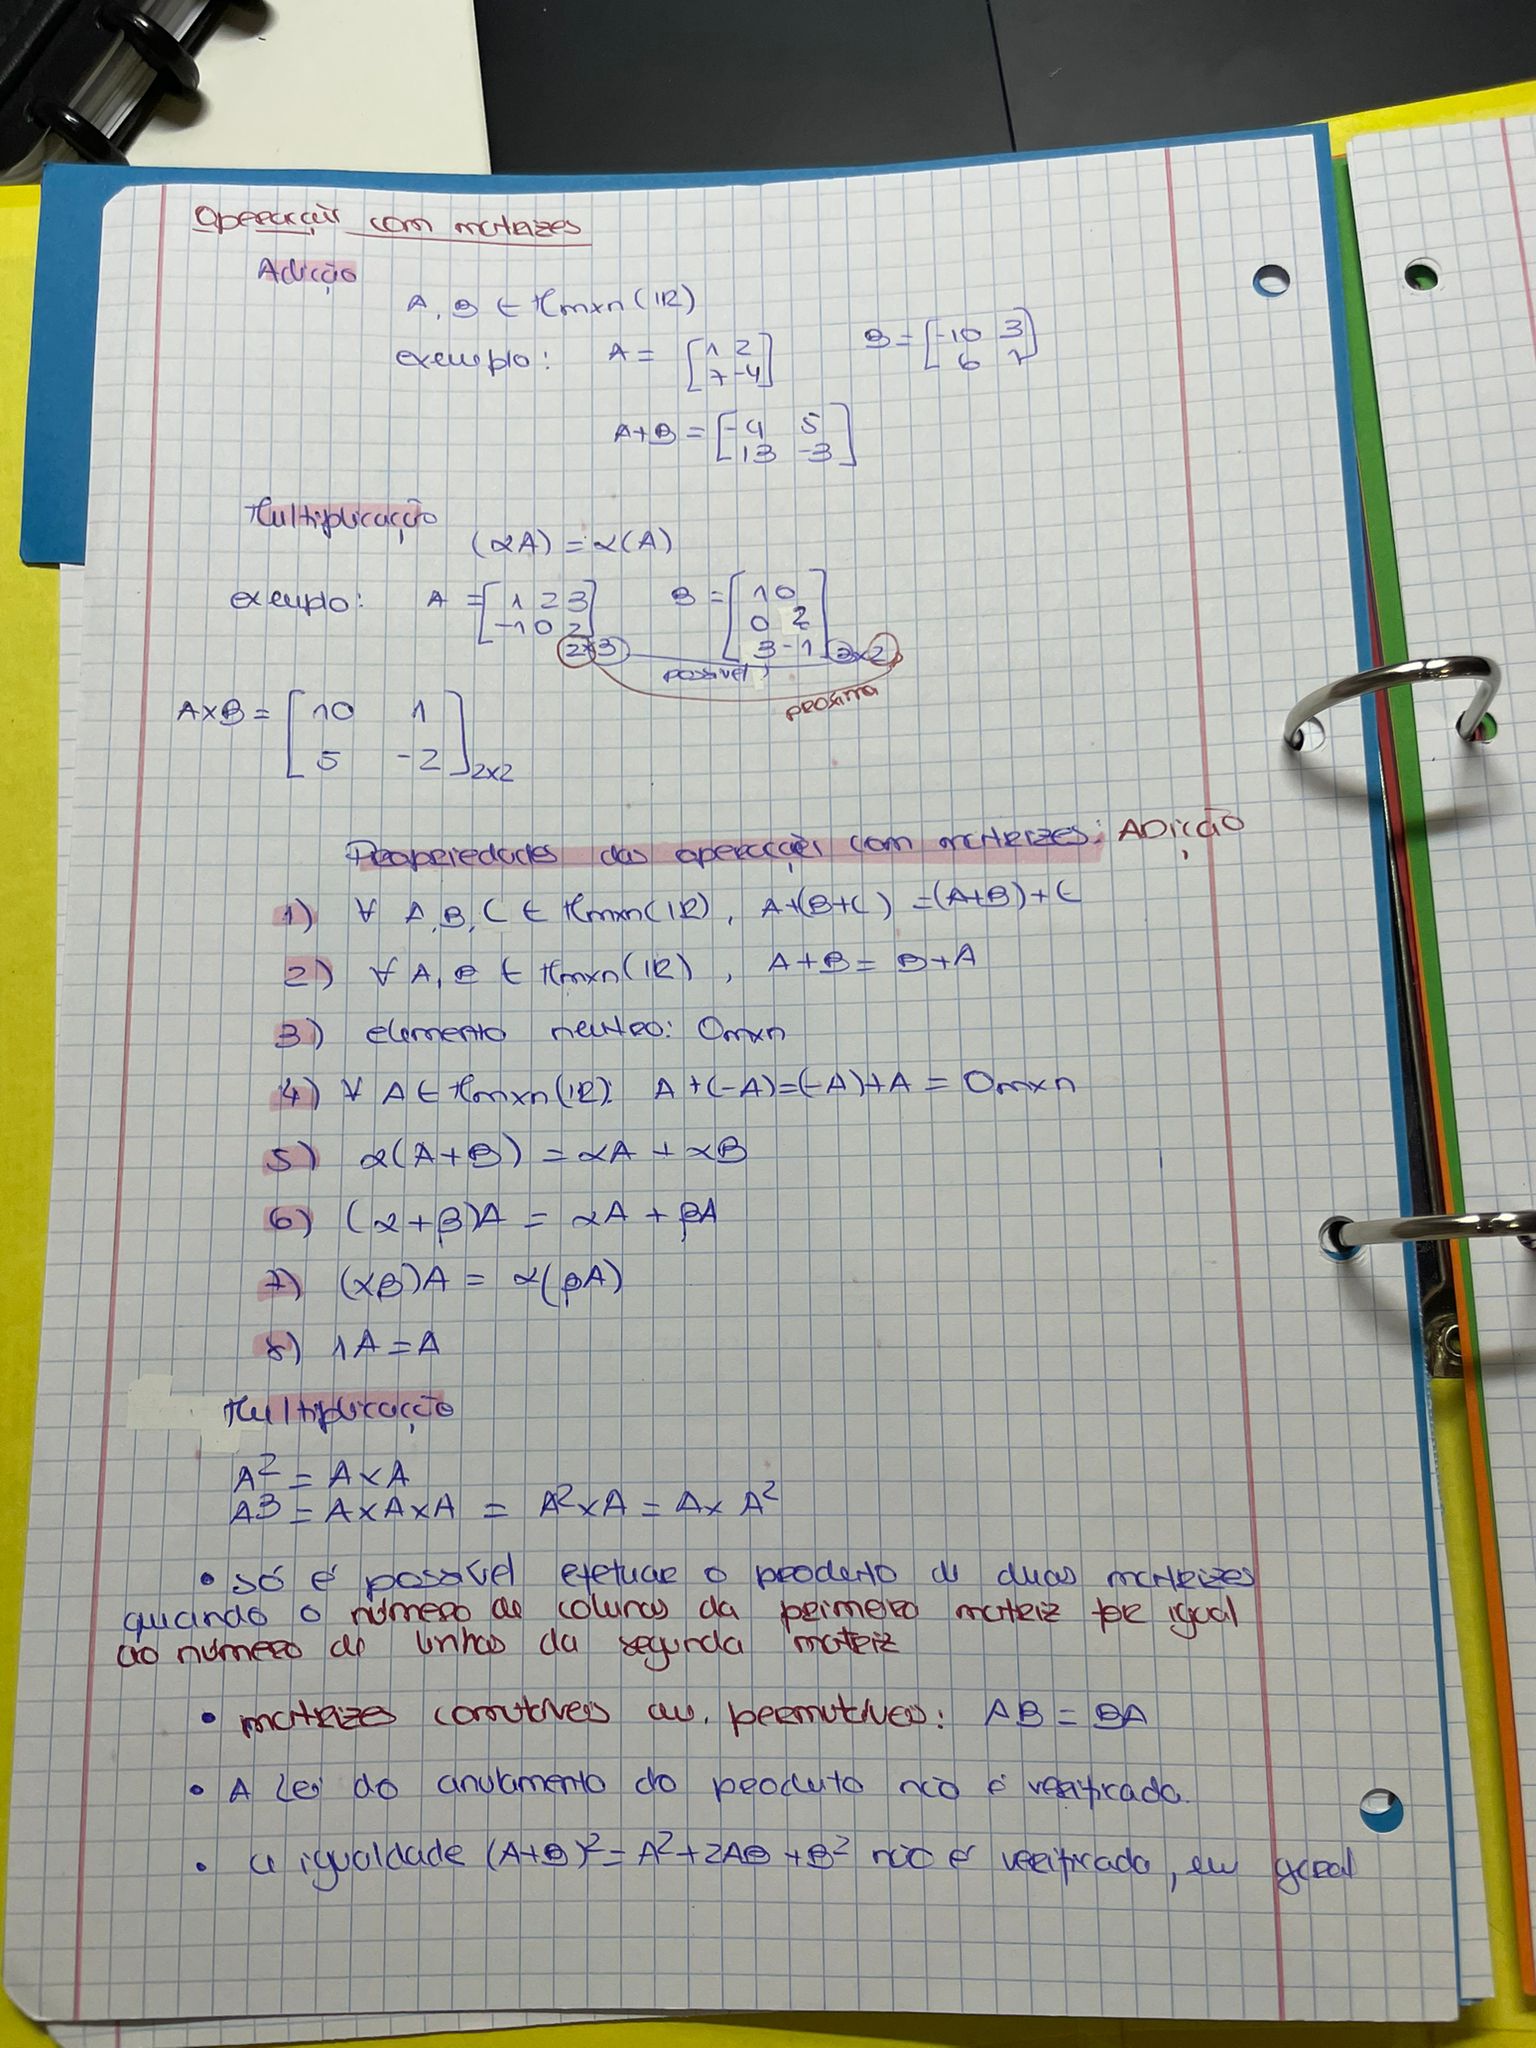 Operações com matrizes
Adição
A, B ∈ Mmxn (IR)
exemplo: A = [1 2
7 -4] B = [-10 3
6 1]
A+B = [-9 5
13 -3]
Multiplicação
(αA) = α(A)
exemplo: A = [1 2 3
-1 0 2] 2x3 B = [1 0
0 2
3 -1] 3x2
possível
próxima
AxB = [10 1
5 -2] 2x2
Propriedades das operações com matrizes: ADição
1) ∀ A, B, C ∈ Mmxn (IR), A+(B+C) = (A+B)+C
2) ∀ A, B ∈ Mmxn (IR), A+B = B+A
3) elemento neutro: Omxn
4) ∀ A ∈ Mmxn (IR): A+(-A)=(-A)+A = Omxn
5) α(A+B) = αA + αB
6) (α+β)A = αA + βA
7) (αβ)A = α(βA)
8) 1A = A
Multiplicação
A² = A×A
A3 = A×A×A = A²×A = A× A²
• só é possível efetuar o produto de duas matrizes
quando o número de colunas da primeira matriz for igual
ao número de linhas da segunda matriz
• matrizes comutáveis ou permutáveis: AB = BA
• A lei do anulamento do produto não é verificada.
• a igualdade (A+B)² = A²+2AB+B² não é verificada, em geral